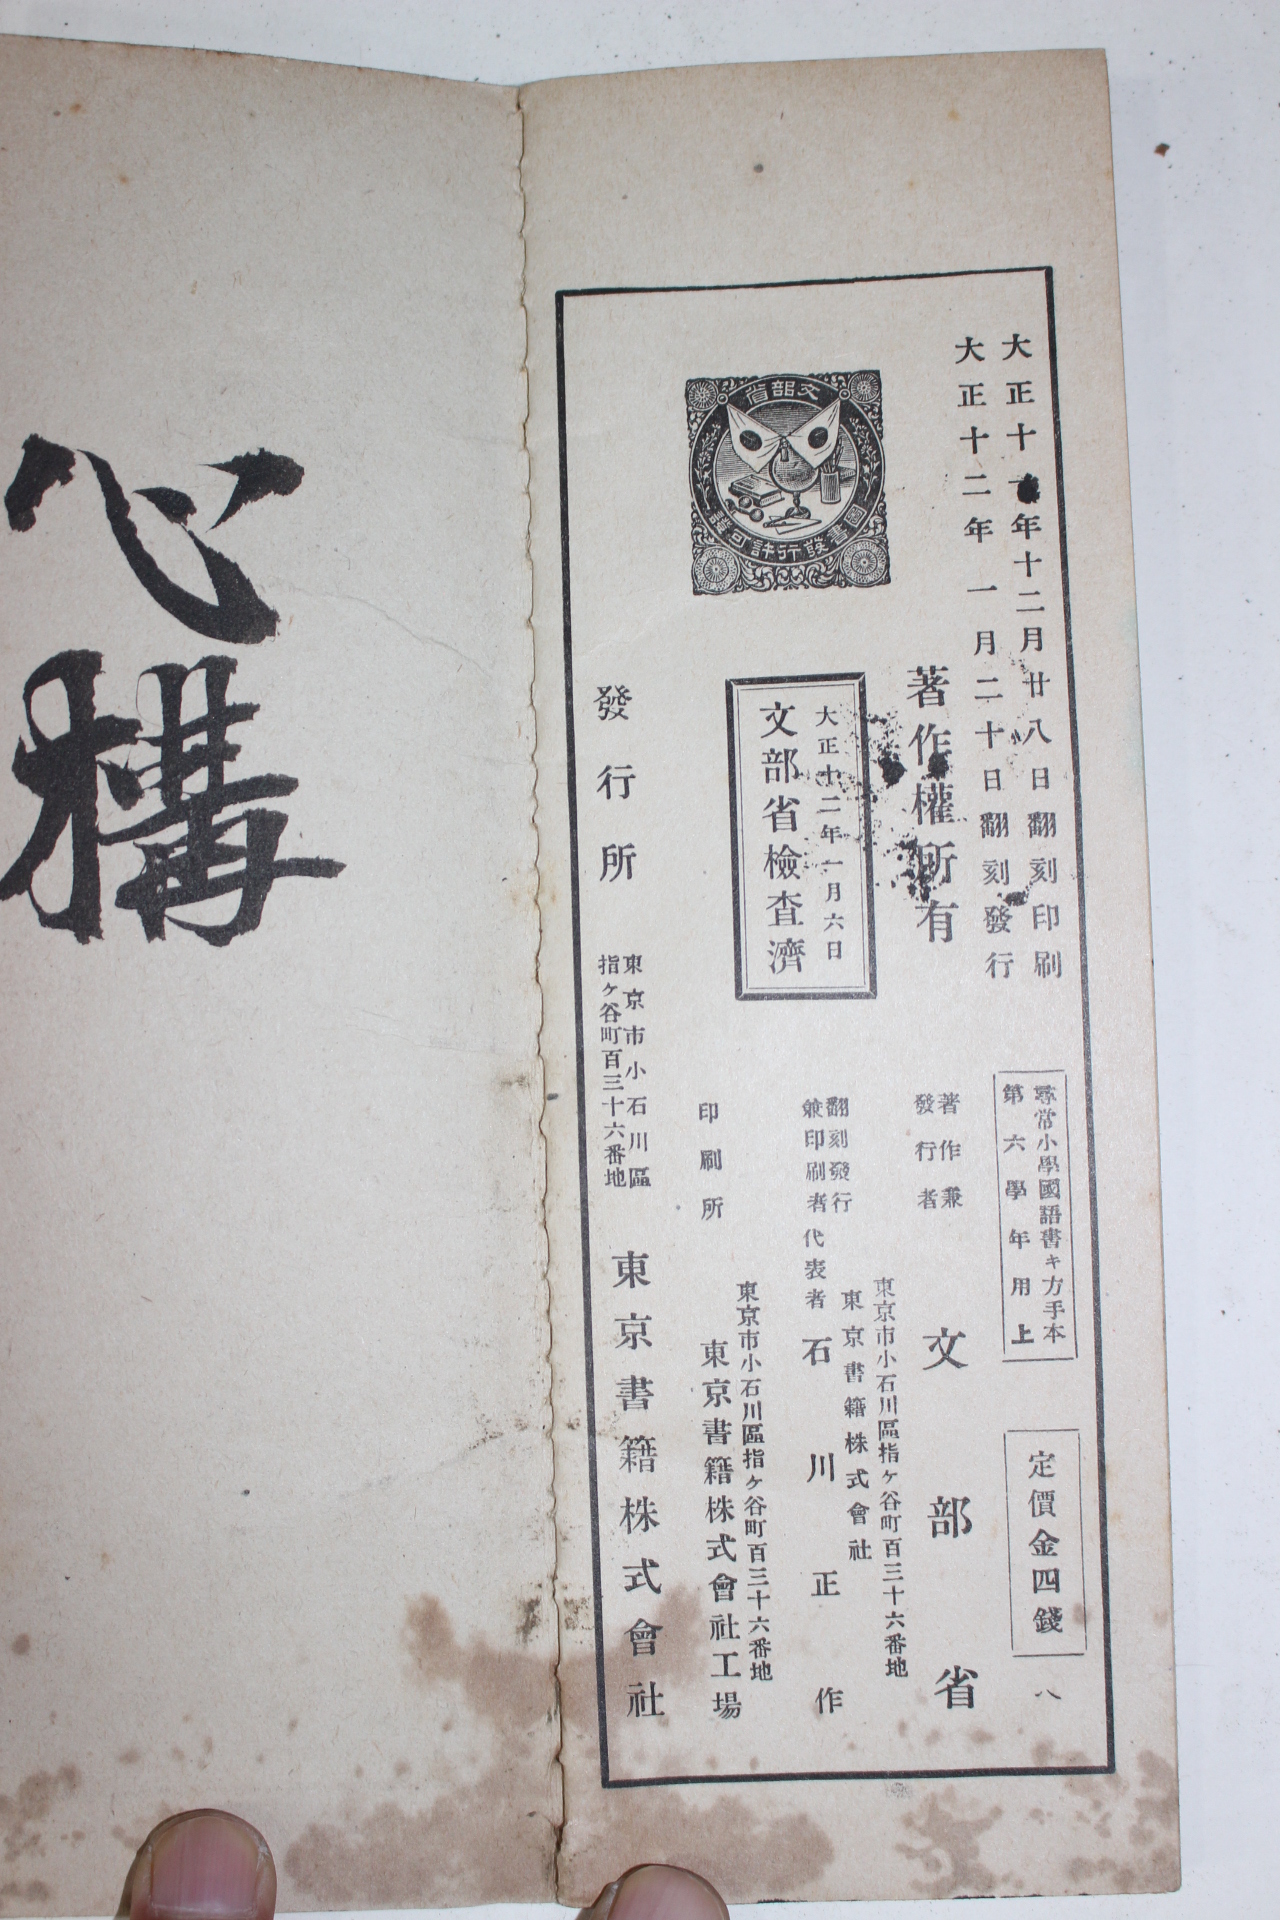 大正十年十二月廿八日翻刻印刷
大正十二年一月二十日翻刻發行
尋常小學國語書キ方手本
第六學年用上
定價金四錢
八
著作權所有
大正十二年一月六日
文部省檢査濟
文部省
圖書發行許可證
著作兼
發行者
文部省
東京市小石川區指ヶ谷町百三十六番地
東京書籍株式會社
翻刻發行
兼印刷者
代表者
石川正作
印刷所
東京市小石川區指ヶ谷町百三十六番地
東京書籍株式會社工場
發行所
東京市小石川區
指ヶ谷町百三十六番地
東京書籍株式會社
心構